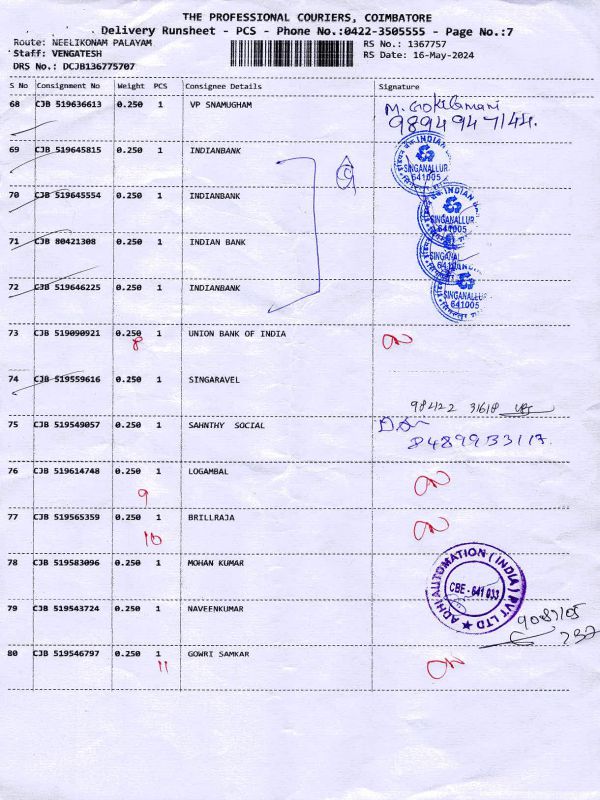 THE PROFESSIONAL COURIERS, COIMBATORE
Delivery Runsheet - PCS - Phone No.:0422-3505555 - Page No.:7
Route: NEELIKONAM PALAYAM RS No.: 1367757
Staff: VENGATESH RS Date: 16-May-2024
DRS No.: DCJB136775707
S No Consignment No Weight PCS Consignee Details Signature
68 CJB 519636613 0.250 1 VP SNAMUGHAM
9894947144.
69 CJB 519645815 0.250 1 INDIANBANK
INDIAN
SINGANALLUR
641005
70 CJB 519645554 0.250 1 INDIANBANK
INDIAN
SINGANALLUR
641005
71 CJB 80421308 0.250 1 INDIAN BANK
72 CJB 519646225 0.250 1 INDIANBANK
SINGANALLUR
641005
73 CJB 519090921 0.250 1 UNION BANK OF INDIA
8
74 CJB 519559616 0.250 1 SINGARAVEL
98422 31618
75 CJB 519549057 0.250 1 SAHNTHY SOCIAL
76 CJB 519614748 0.250 1 LOGAMBAL
9
77 CJB 519565359 0.250 1 BRILLRAJA
10
78 CJB 519583096 0.250 1 MOHAN KUMAR
ADHI AUTOMATION (INDIA) PVT LTD
CBE - 641 033
79 CJB 519543724 0.250 1 NAVEENKUMAR
80 CJB 519546797 0.250 1 GOWRI SAMKAR
11